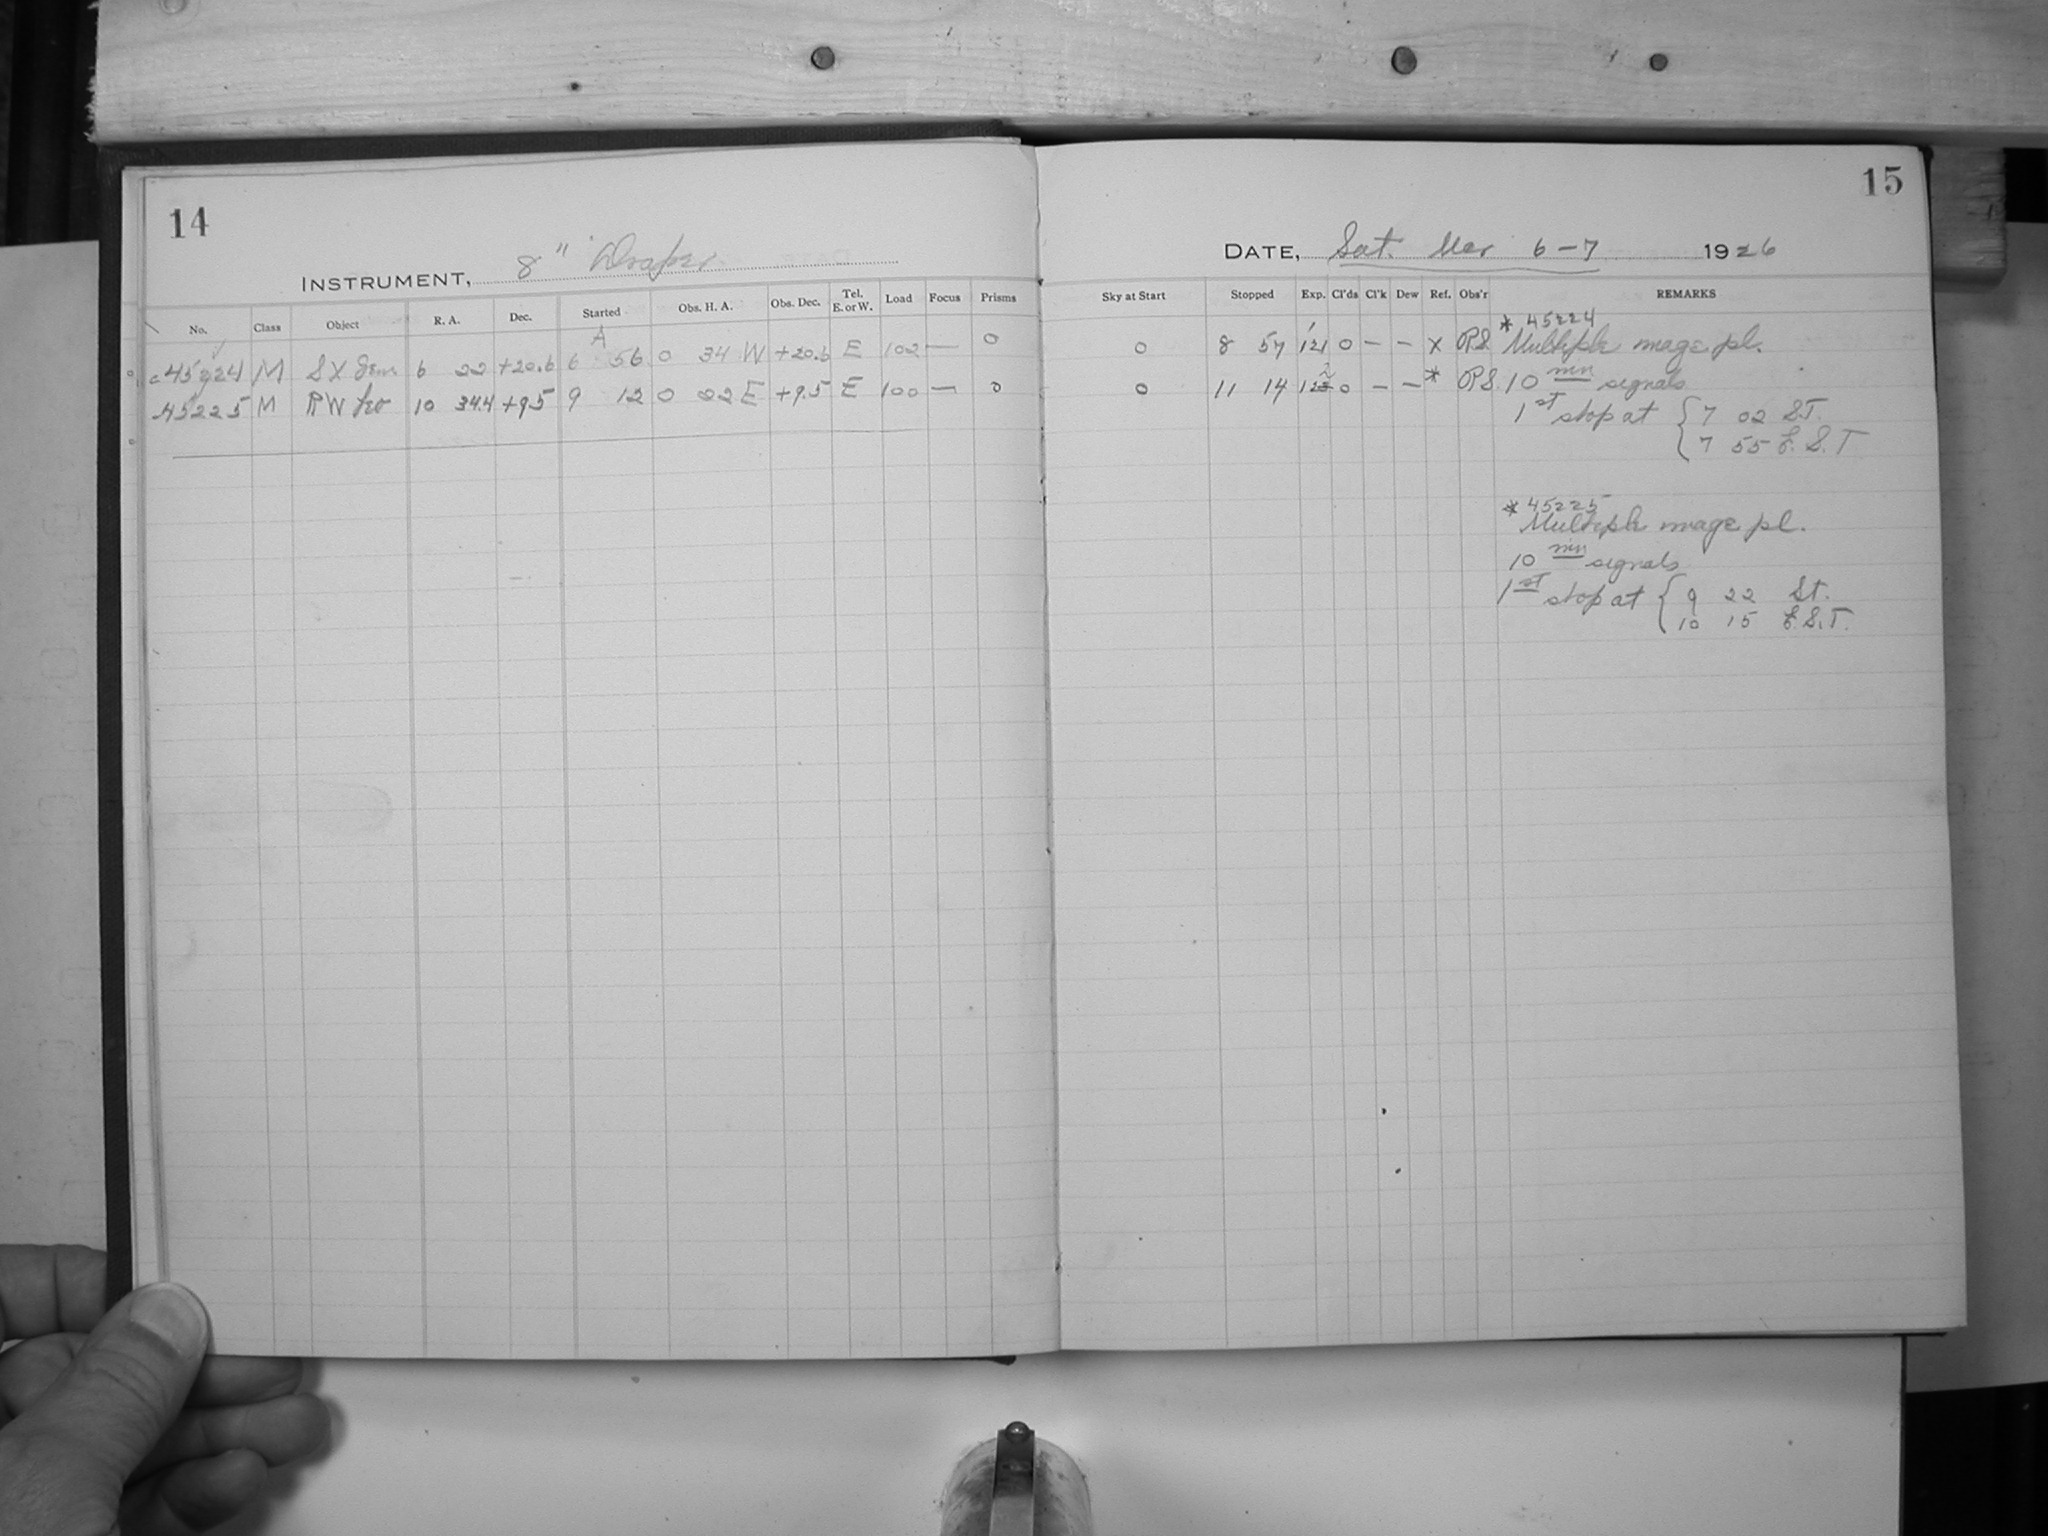 14
INSTRUMENT, 8" Draper
No. Class Object R. A. Dec. Started Obs. H. A. Obs. Dec. Tel. E. or W. Load Focus Prisms
A
45224 M SX Gem 6 22 +20.6 6 56 0 34 W +20.6 E 102 — 0
45225 M RW Leo 10 34.4 +9.5 9 12 0 22 E +9.5 E 100 — 0
15
DATE, Sat. Mar 6-7 1926
Sky at Start Stopped Exp. Cl'ds Cl'k Dew Ref. Obs'r REMARKS
* 45224
0 8 57 121 0 — — X OPS Multiple image pl.
0 11 14 122 0 — — * OPS. 10 min signals
1st stop at { 7 02 ST.
7 55 E.S.T
* 45225
Multiple image pl.
10 min signals
1st stop at { 9 22 St.
10 15 E.S.T.